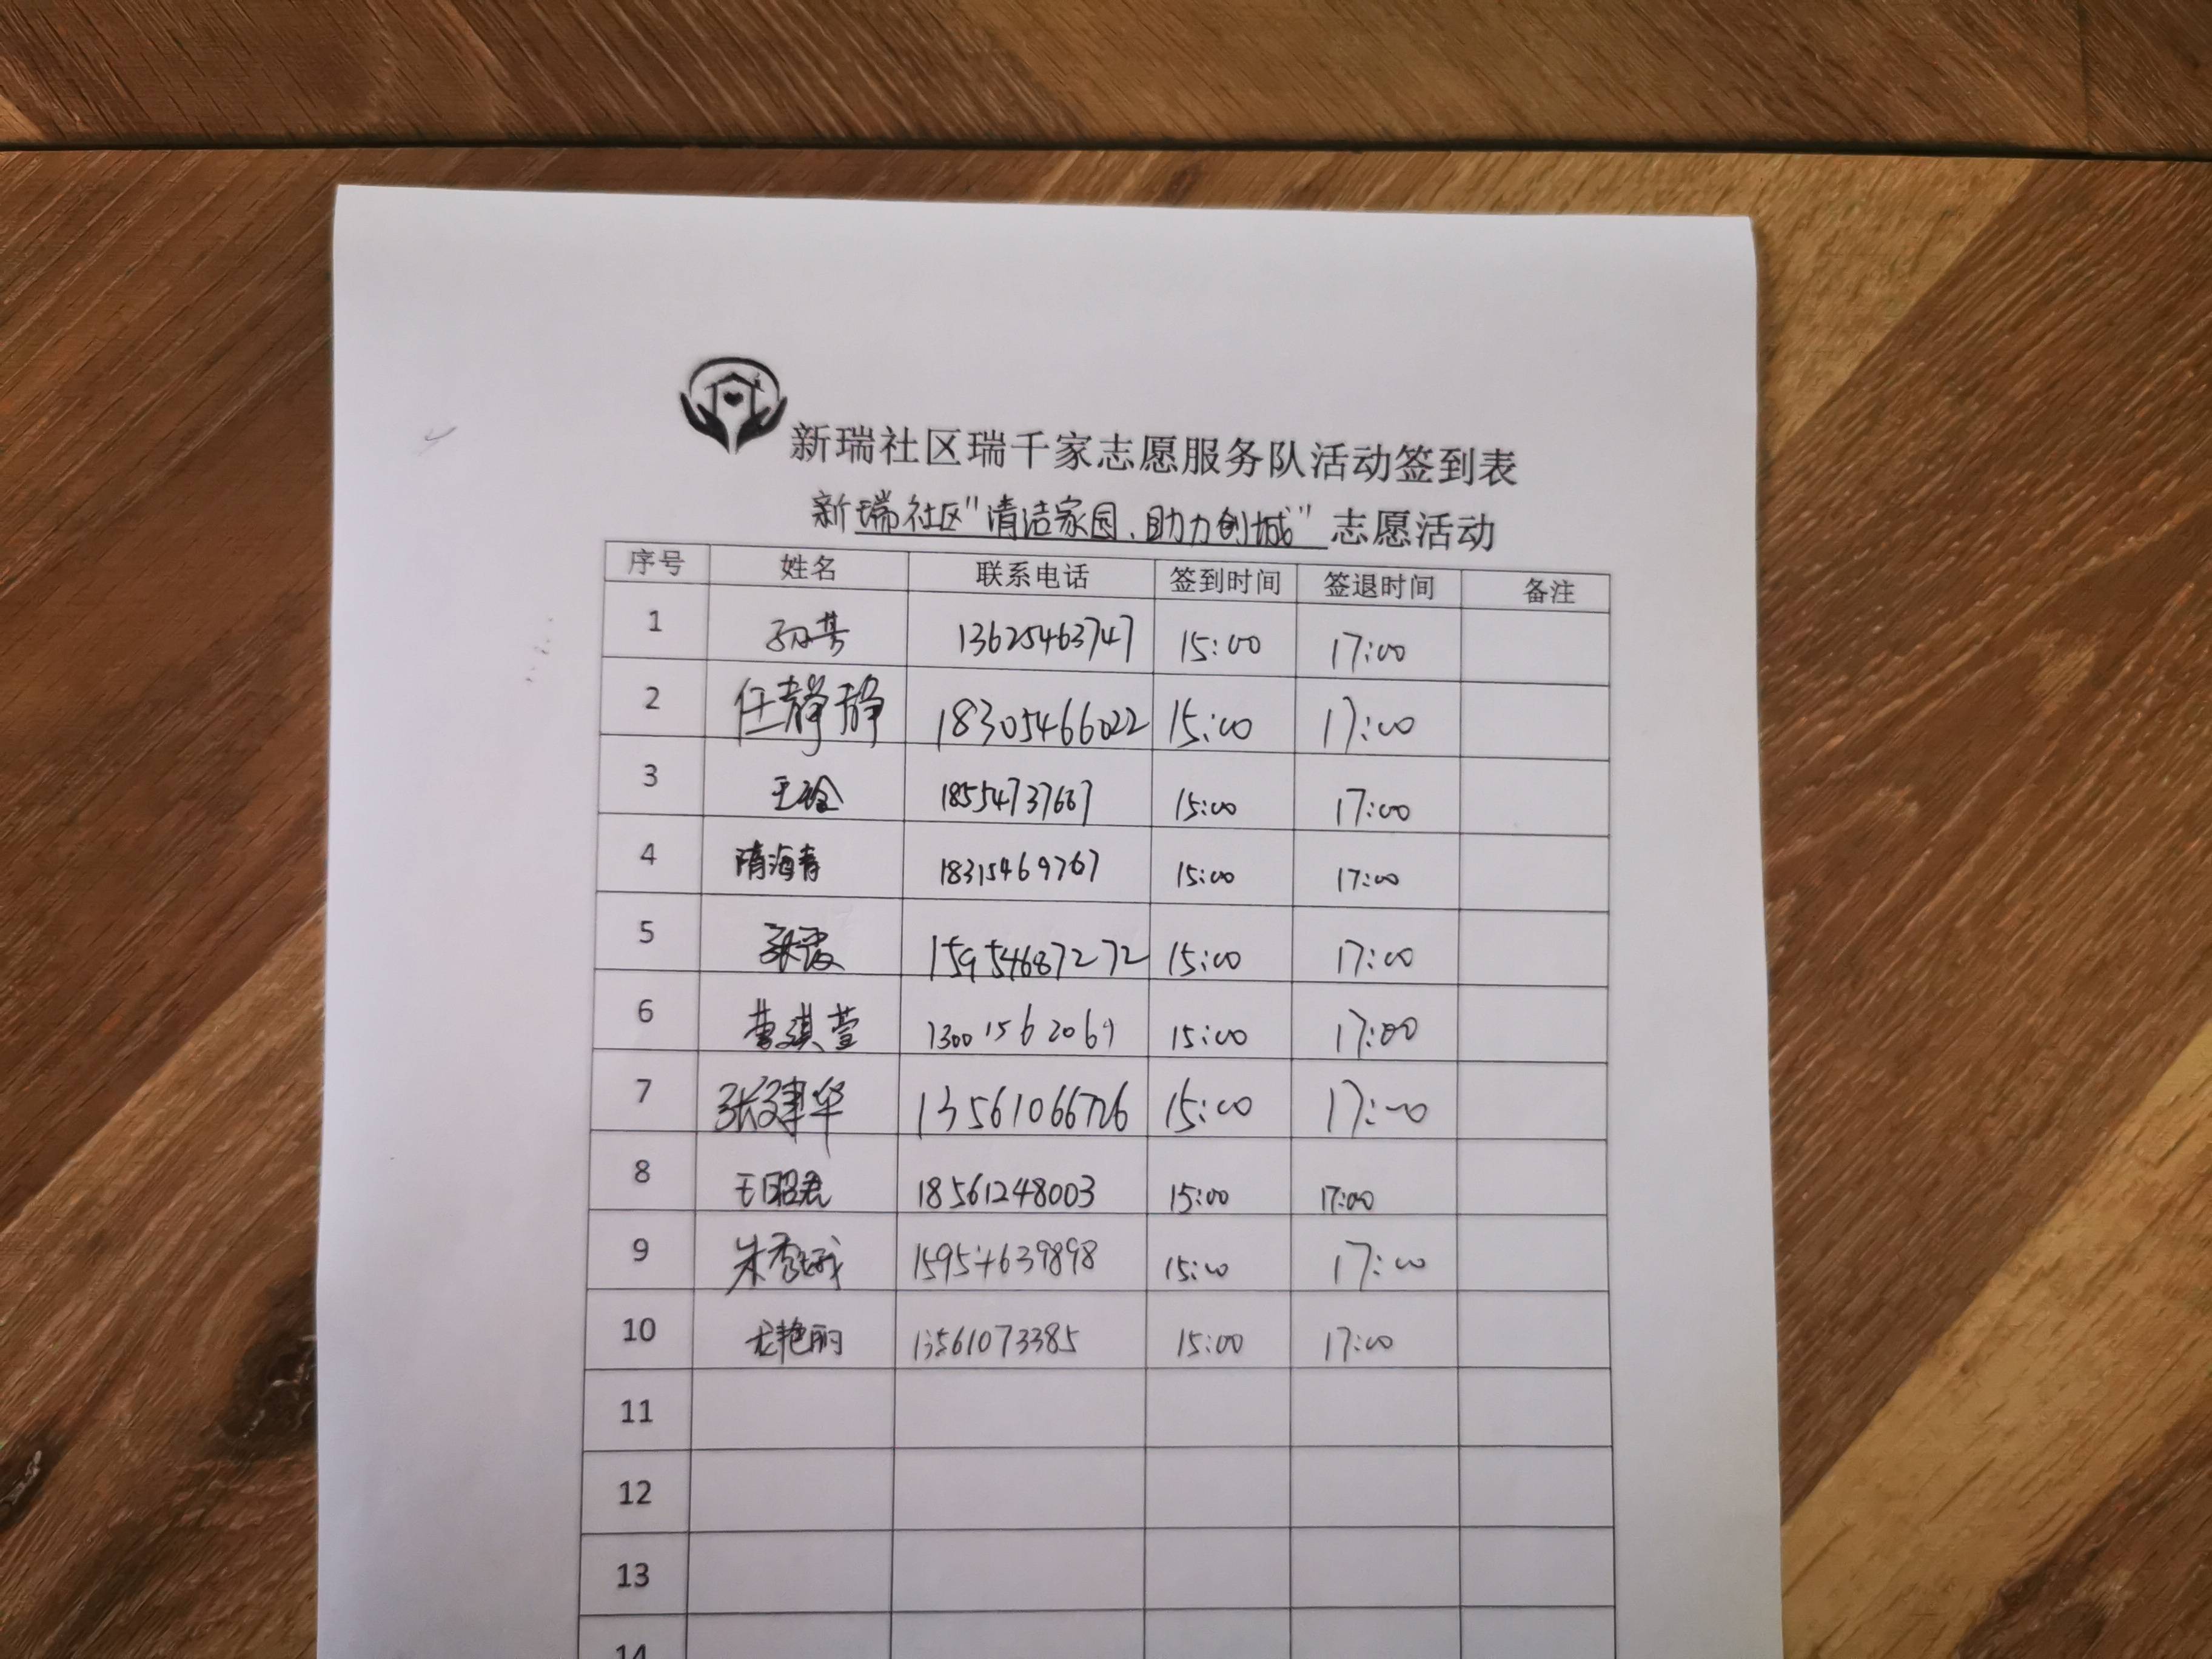 新瑞社区瑞千家志愿服务队活动签到表
新瑞社区"清洁家园、助力创城"志愿活动
序号 姓名 联系电话 签到时间 签退时间 备注
1 13625463747 15:00 17:00
2 任静静 18305466022 15:00 17:00
3 王玲 15:00 17:00
4 隋海青 18315469767 15:00 17:00
5 张霞 15954687272 15:00 17:00
6 曹琪萱 15:00 17:00
7 张建华 13561066726 15:00 17:00
8 王昭君 18561248003 15:00 17:00
9 朱秀娥 15954639898 15:00 17:00
10 尤艳丽 13561073385 15:00 17:00
11
12
13
14